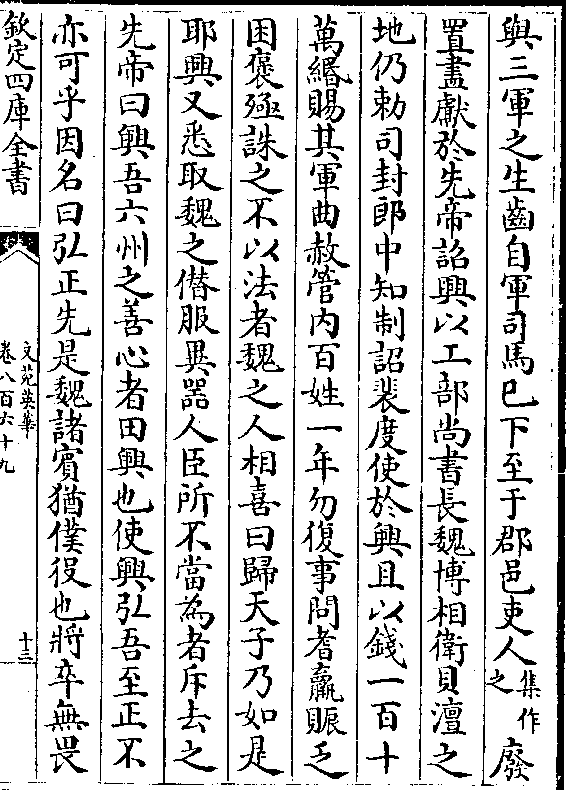 與三軍之生齒自軍司馬已下至于郡邑吏人集作之廢
置盡獻於先帝詔興以工部尚書長魏博相衛貝澶之
地仍勅司封郎中知制詔裴度使於興且以錢一百十
萬緡賜其軍曲赦管内百姓一年勿復事問耆羸賑乏
困褒殛誅之不以法者魏之人相喜曰歸天子乃如是
耶興又悉取魏之僣服異器人臣所不當為者斥去之
先帝曰興吾六州之善心者田興也使興弘吾至正不
亦可乎因名曰弘正先是魏諸賓猶僕役也將卒無畏
欽定四庫全書
文苑英華
卷八百六十九
十三